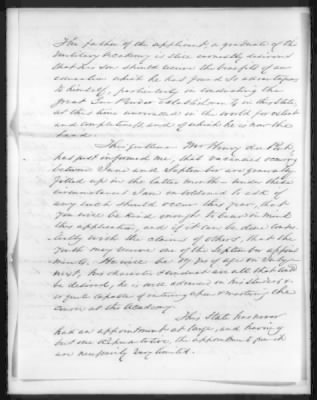 The father of the applicant, a graduate of the
Military Academy is still earnestly desirous
that his son should secure the benefits of an
education which he has found so advantageous
to himself, particularly in conducting the
great Gun Powder Establishment in this State,
at this time unrivalled in the world for extent
and completeness and of which he is now the
head.
This gentleman Mr Henry du Pont,
has just informed me, that vacancies occurring
between June and September are generally
filled up in the latter month. Under these
circumstances I am emboldened to ask if
any such should occur this year, that
you will be kind enough to bear in mind
this application, and if it can be done consis-
tently with the claims of others, that the
youth may secure one of the September appoint
ments. He will be of age on July
next, his character & conduct are all that could
be desired, he is well advanced in his studies &
is quite capable of entering upon & meeting the
course at the Academy.
This State has never
had an appointment at large, and having
but one Representative, the appointments from it
are necessarily very limited.